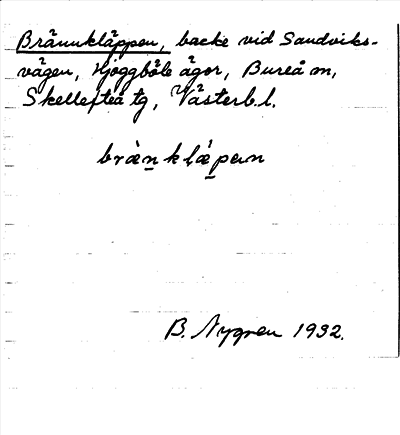 Brännkläppen, backe vid Sandviks-
vägen, Hjoggböle ägor, Bureå sn,
Skellefteå tg, Västerb. l.
brä̀n̲klǽp̲an
B. Nygren 1932.